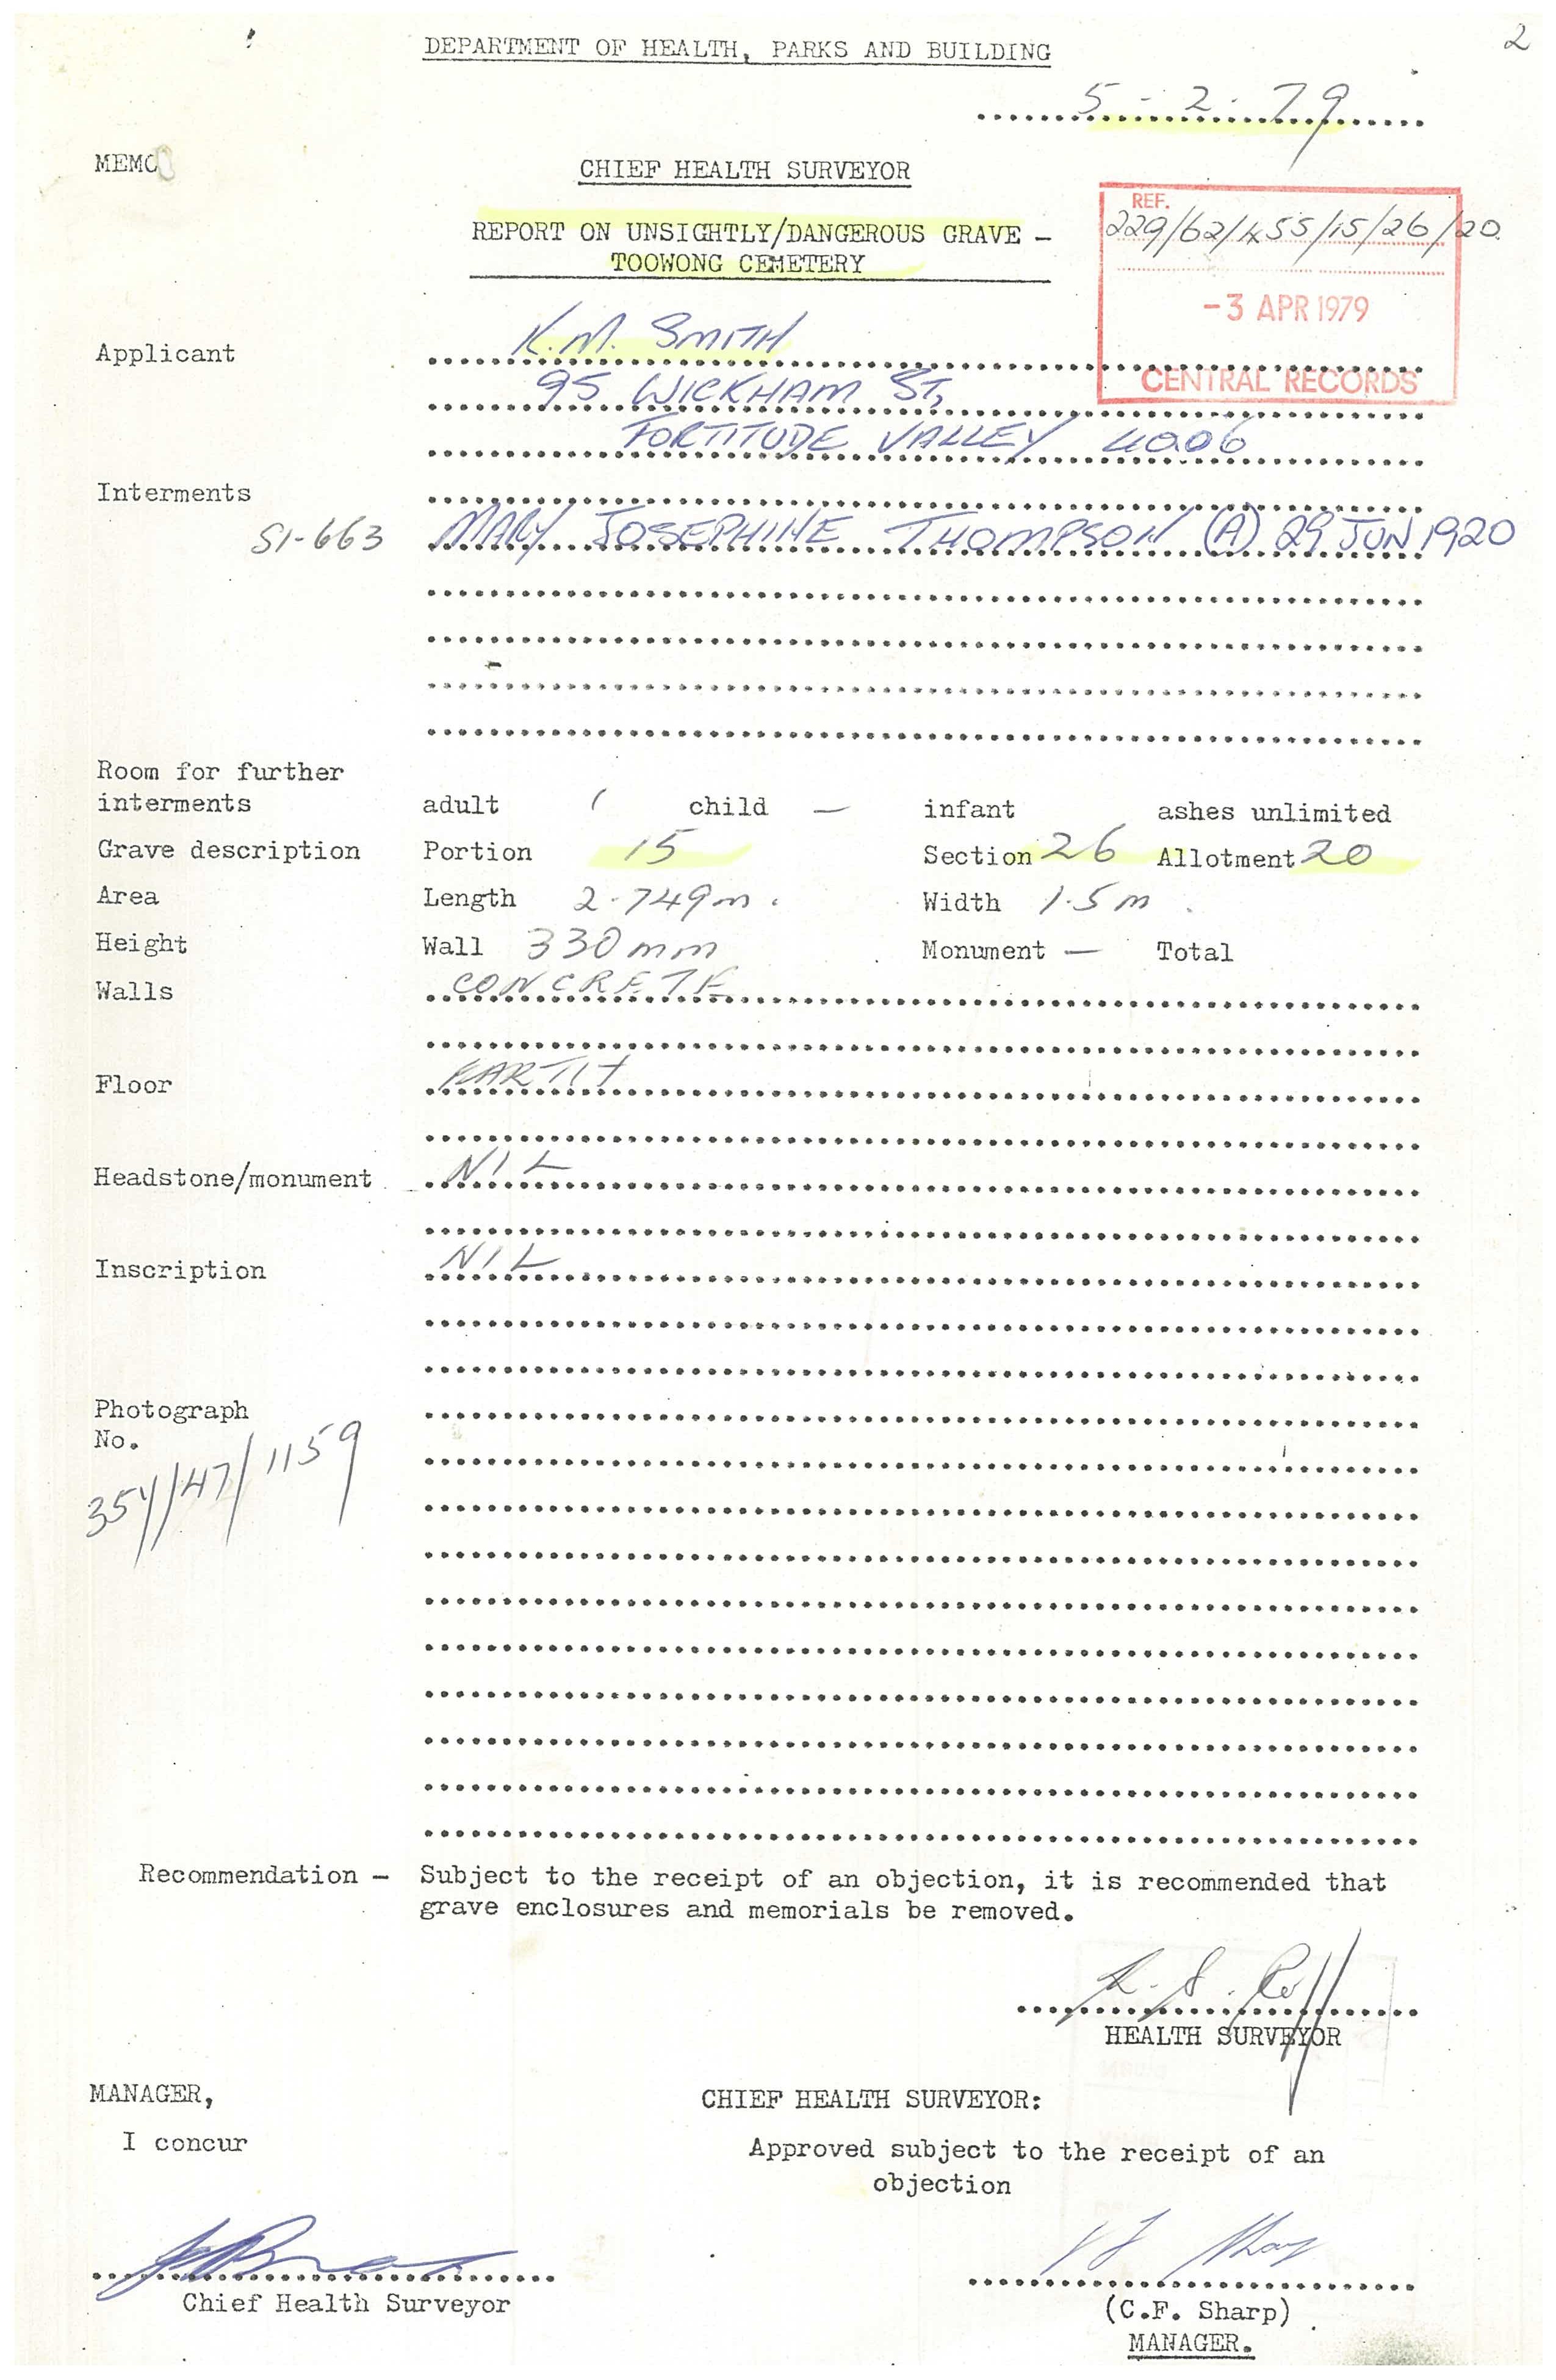 2
DEPARTMENT OF HEALTH, PARKS AND BUILDING
5 - 2 - 79
MEMO
CHIEF HEALTH SURVEYOR
REPORT ON UNSIGHTLY/DANGEROUS GRAVE -
TOOWONG CEMETERY
REF.
229/62/455/15/26/20
-3 APR 1979
CENTRAL RECORDS
Applicant K.M. SMITH
95 WICKHAM ST,
FORTITUDE VALLEY 4006
Interments
S1-663 MARY JOSEPHINE THOMPSON (A) 29 JUN 1920
Room for further
interments adult 1 child — infant ashes unlimited
Grave description Portion 15 Section 26 Allotment 20
Area Length 2.749m. Width 1.5m.
Height Wall 330mm Monument — Total
Walls CONCRETE
Floor EARTH
Headstone/monument NIL
Inscription NIL
Photograph
No.
354/47/1159
Recommendation - Subject to the receipt of an objection, it is recommended that
grave enclosures and memorials be removed.
HEALTH SURVEYOR
MANAGER, CHIEF HEALTH SURVEYOR:
I concur Approved subject to the receipt of an
objection
Chief Health Surveyor
(C.F. Sharp)
MANAGER.